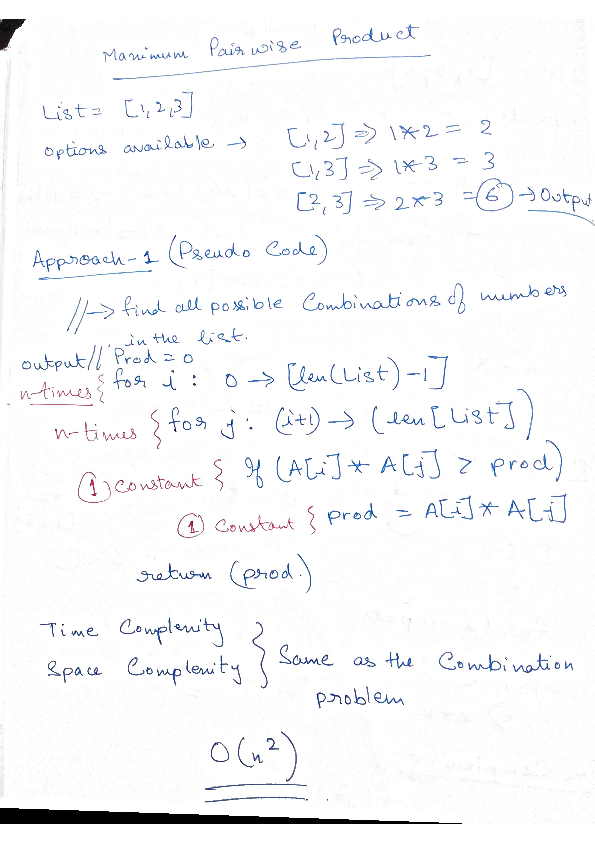 Maximum Pairwise Product
List = [1,2,3]
options available → [1,2] ⇒ 1*2 = 2
[1,3] ⇒ 1*3 = 3
[2,3] ⇒ 2*3 = 6 → Output
Approach-1 (Pseudo Code)
//→ find all possible Combinations of numbers
in the list.
output// Prod = 0
n-times { for i : 0 → [len(List)-1]
n-times { for j : (i+1) → (len[List])
① constant { If (A[i] * A[j] > prod)
① constant { prod = A[i] * A[j]
return (prod.)
Time Complexity
Space Complexity } Same as the Combination
problem
O(n²)